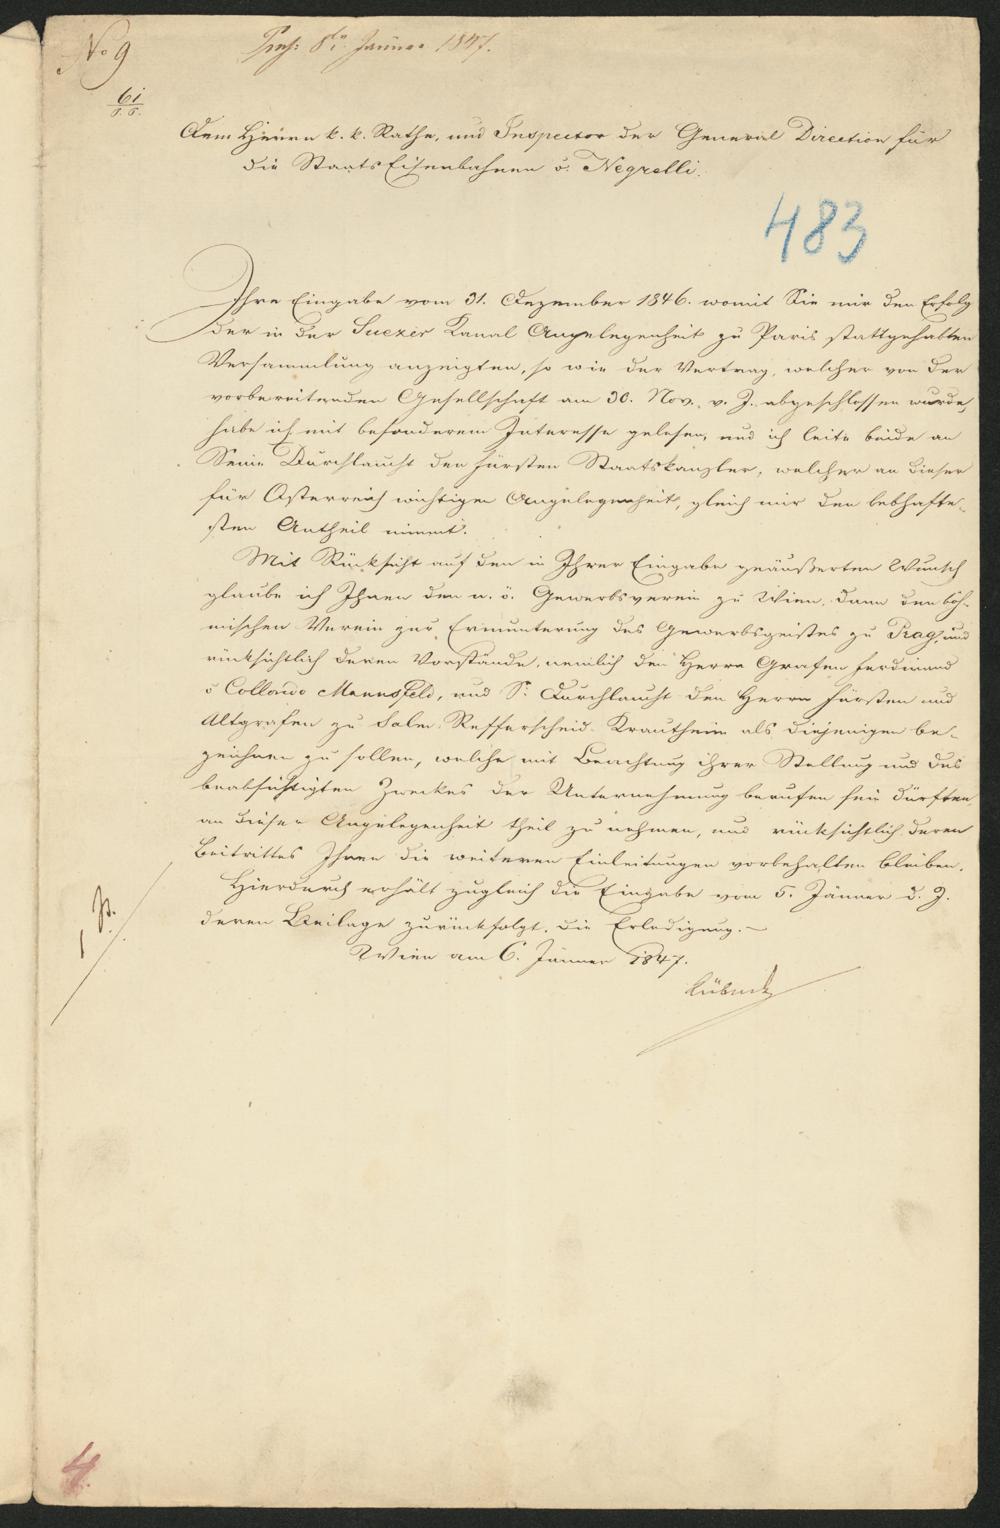 No 9
Pras: 8t. Jänner 1847.
61
S. S.
Dem Herrn k. k. Rathe, und Inspector der General Direction für
die Staats Eisenbahnen v. Negrelli.
483
Ihre Eingabe vom 31. Dezember 1846. womit Sie mir den Erfolg
der in der Suezer Kanal Angelegenheit zu Paris stattgehabten
Versammlung anzeigten, so wie der Vertrag, welcher von der
vorbereitenden Gesellschaft am 30. Nov. v. J. abgeschlossen wurde,
habe ich mit besonderem Interesse gelesen, und ich leite beide an
Seine Durchlaucht den Fürsten Staatskanzler, welcher an dieser
für Österreich wichtigen Angelegenheit, gleich mir den lebhafte-
sten Antheil nimmt.
Mit Rücksicht auf den in Ihrer Eingabe geäußerten Wunsch
glaube ich Ihnen den n. ö. Gewerbsverein zu Wien, dann den böh-
mischen Verein zur Ermunterung des Gewerbsgeistes zu Prag, und
rücksichtlich deren Vorstände, nemlich den Herrn Grafen Ferdinand
v Colloredo Mannsfeld, und Sr. Durchlaucht den Herrn Fürsten und
Altgrafen zu Salm-Refferscheid-Krautheim als diejenigen be-
zeichnen zu sollen, welche mit Beachtung ihrer Stellung und des
beabsichtigten Zweckes der Unternehmung berufen sein dürften
an dieser Angelegenheit theil zu nehmen, und rücksichtlich deren
Beitrittes Ihnen die weiteren Einleitungen vorbehalten bleiben.
Hierdurch erhält zugleich die Eingabe vom 5. Jänner d. J.
deren Beilage zurückfolgt, die Erledigung.—
Wien am 6. Jänner 1847.
Kübeck
4.